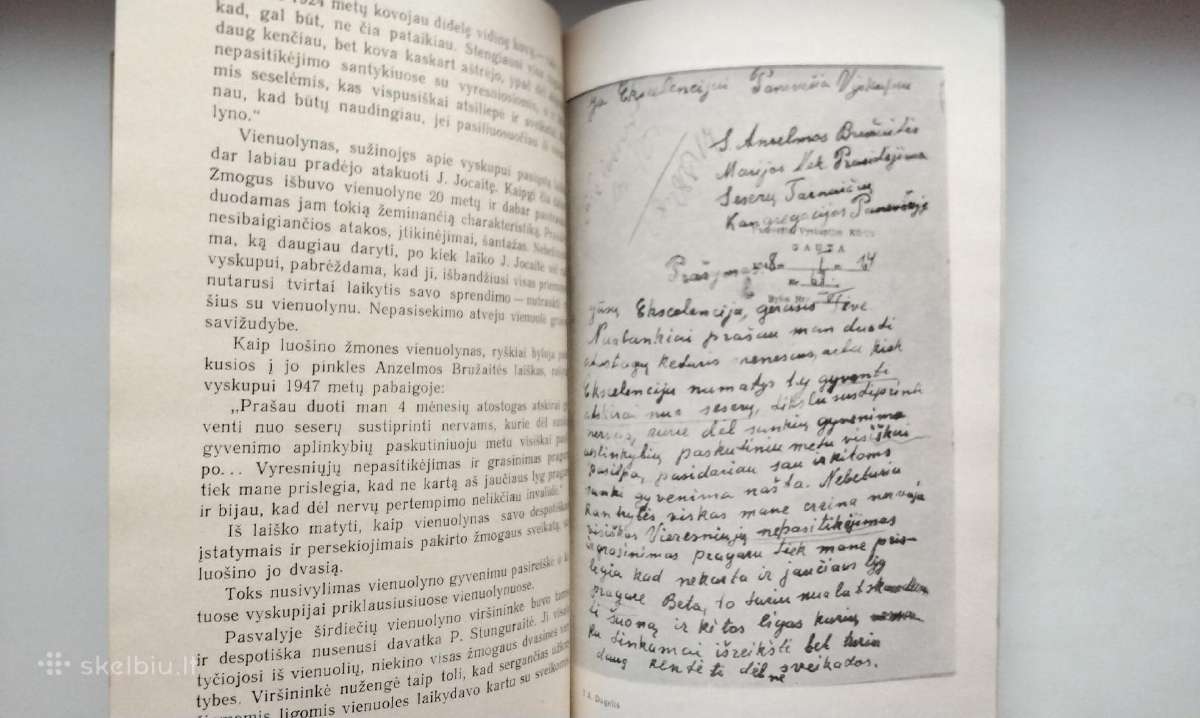 1924 metų kovojau didelę vidinę kovą
kad, gal būt, ne čia pataikiau. Stengiausi
daug kenčiau, bet kova kaskart aštrėjo, ypač dėl
nepasitikėjimo santykiuose su vyresniosiomis
mis seselėmis, kas vispusiškai atsiliepė ir sveikatai
nau, kad būtų naudingiau, jei pasiliuosuočiau iš
lyno.“
Vienuolynas, sužinojęs apie vyskupui
dar labiau pradėjo atakuoti J. Jocaitę. Kaipgi čia
Žmogus išbuvo vienuolyne 20 metų ir dabar
duodamas jam tokią žeminančią charakteristiką.
nesibaigiančios atakos, įtikinėjimai, šantažas.
ma, ką daugiau daryti, po kiek laiko J. Jocaitė vėl
vyskupui, pabrėždama, kad ji, išbandžiusi visas
nutarusi tvirtai laikytis savo sprendimo — nutraukti
šius su vienuolynu. Nepasisekimo atveju vienuolė
savižudybe.
Kaip luošino žmones vienuolynas, ryškiai byloja
kusios į jo pinkles Anzelmos Bružaitės laiškas,
vyskupui 1947 metų pabaigoje:
„Prašau duoti man 4 mėnesių atostogas atskirai
venti nuo seserų sustiprinti nervams, kurie dėl
gyvenimo aplinkybių paskutiniuoju metu visiškai
po... Vyresniųjų nepasitikėjimas ir grasinimas
tiek mane prislegia, kad ne kartą aš jaučiaus lyg
ir bijau, kad dėl nervų pertempimo nelikčiau invalidė.“
Iš laiško matyti, kaip vienuolynas savo despotiškais
įstatymais ir persekiojimais pakirto žmogaus sveikatą,
luošino jo dvasią.
Toks nusivylimas vienuolyno gyvenimu pasireiškė
tuose vyskupijai priklausiusiuose vienuolynuose.
Pasvalyje širdiečių vienuolyno viršininkė buvo
ir despotiška nusenusi davatka P. Stunguraitė. Ji
tyčiojosi iš vienuolių, niekino visas žmogaus dvasines
tybes. Viršininkė nužengė taip toli, kad sergančias
ligomis vienuoles laikydavo kartu su
Jo Ekscelencijai Panevėžio Vyskupui
S. Anzelmos Bružaitės
Marijos Nek. Prasidėjimo
Seserų Tarnaičių
Kongregacijos Panevėžyje
GAUTA
Prašymas
Jūsų Ekscelencija, gerasis Tėve
Nuolankiai prašau man duoti
atostogų keturis mėnesius, arba kiek
Ekscelencija numatys t.y. gyventi
atskirai nuo seserų, tikslu sustiprinti
nervus, kurie dėl sunkių gyvenimo
aplinkybių paskutiniu metu visiškai
pasilpo, pasidariau sau ir kitoms
sunki gyvenimo našta. Nebeturiu
kantrybės viskas mane erzina nervuoja
visiškas Vieresniųjų nepasitikėjimas
ir grasinimas pragaru tiek mane pris-
legia kad nekarta ir jaučiaus lyg
pragare Beta, to turiu nuolat skaudan
tį šoną ir kitas ligas kurių
tinkamai išreikšti bet turiu
daug kentėti dėl sveikatos.
A. Dagelis
skelbiu.lt